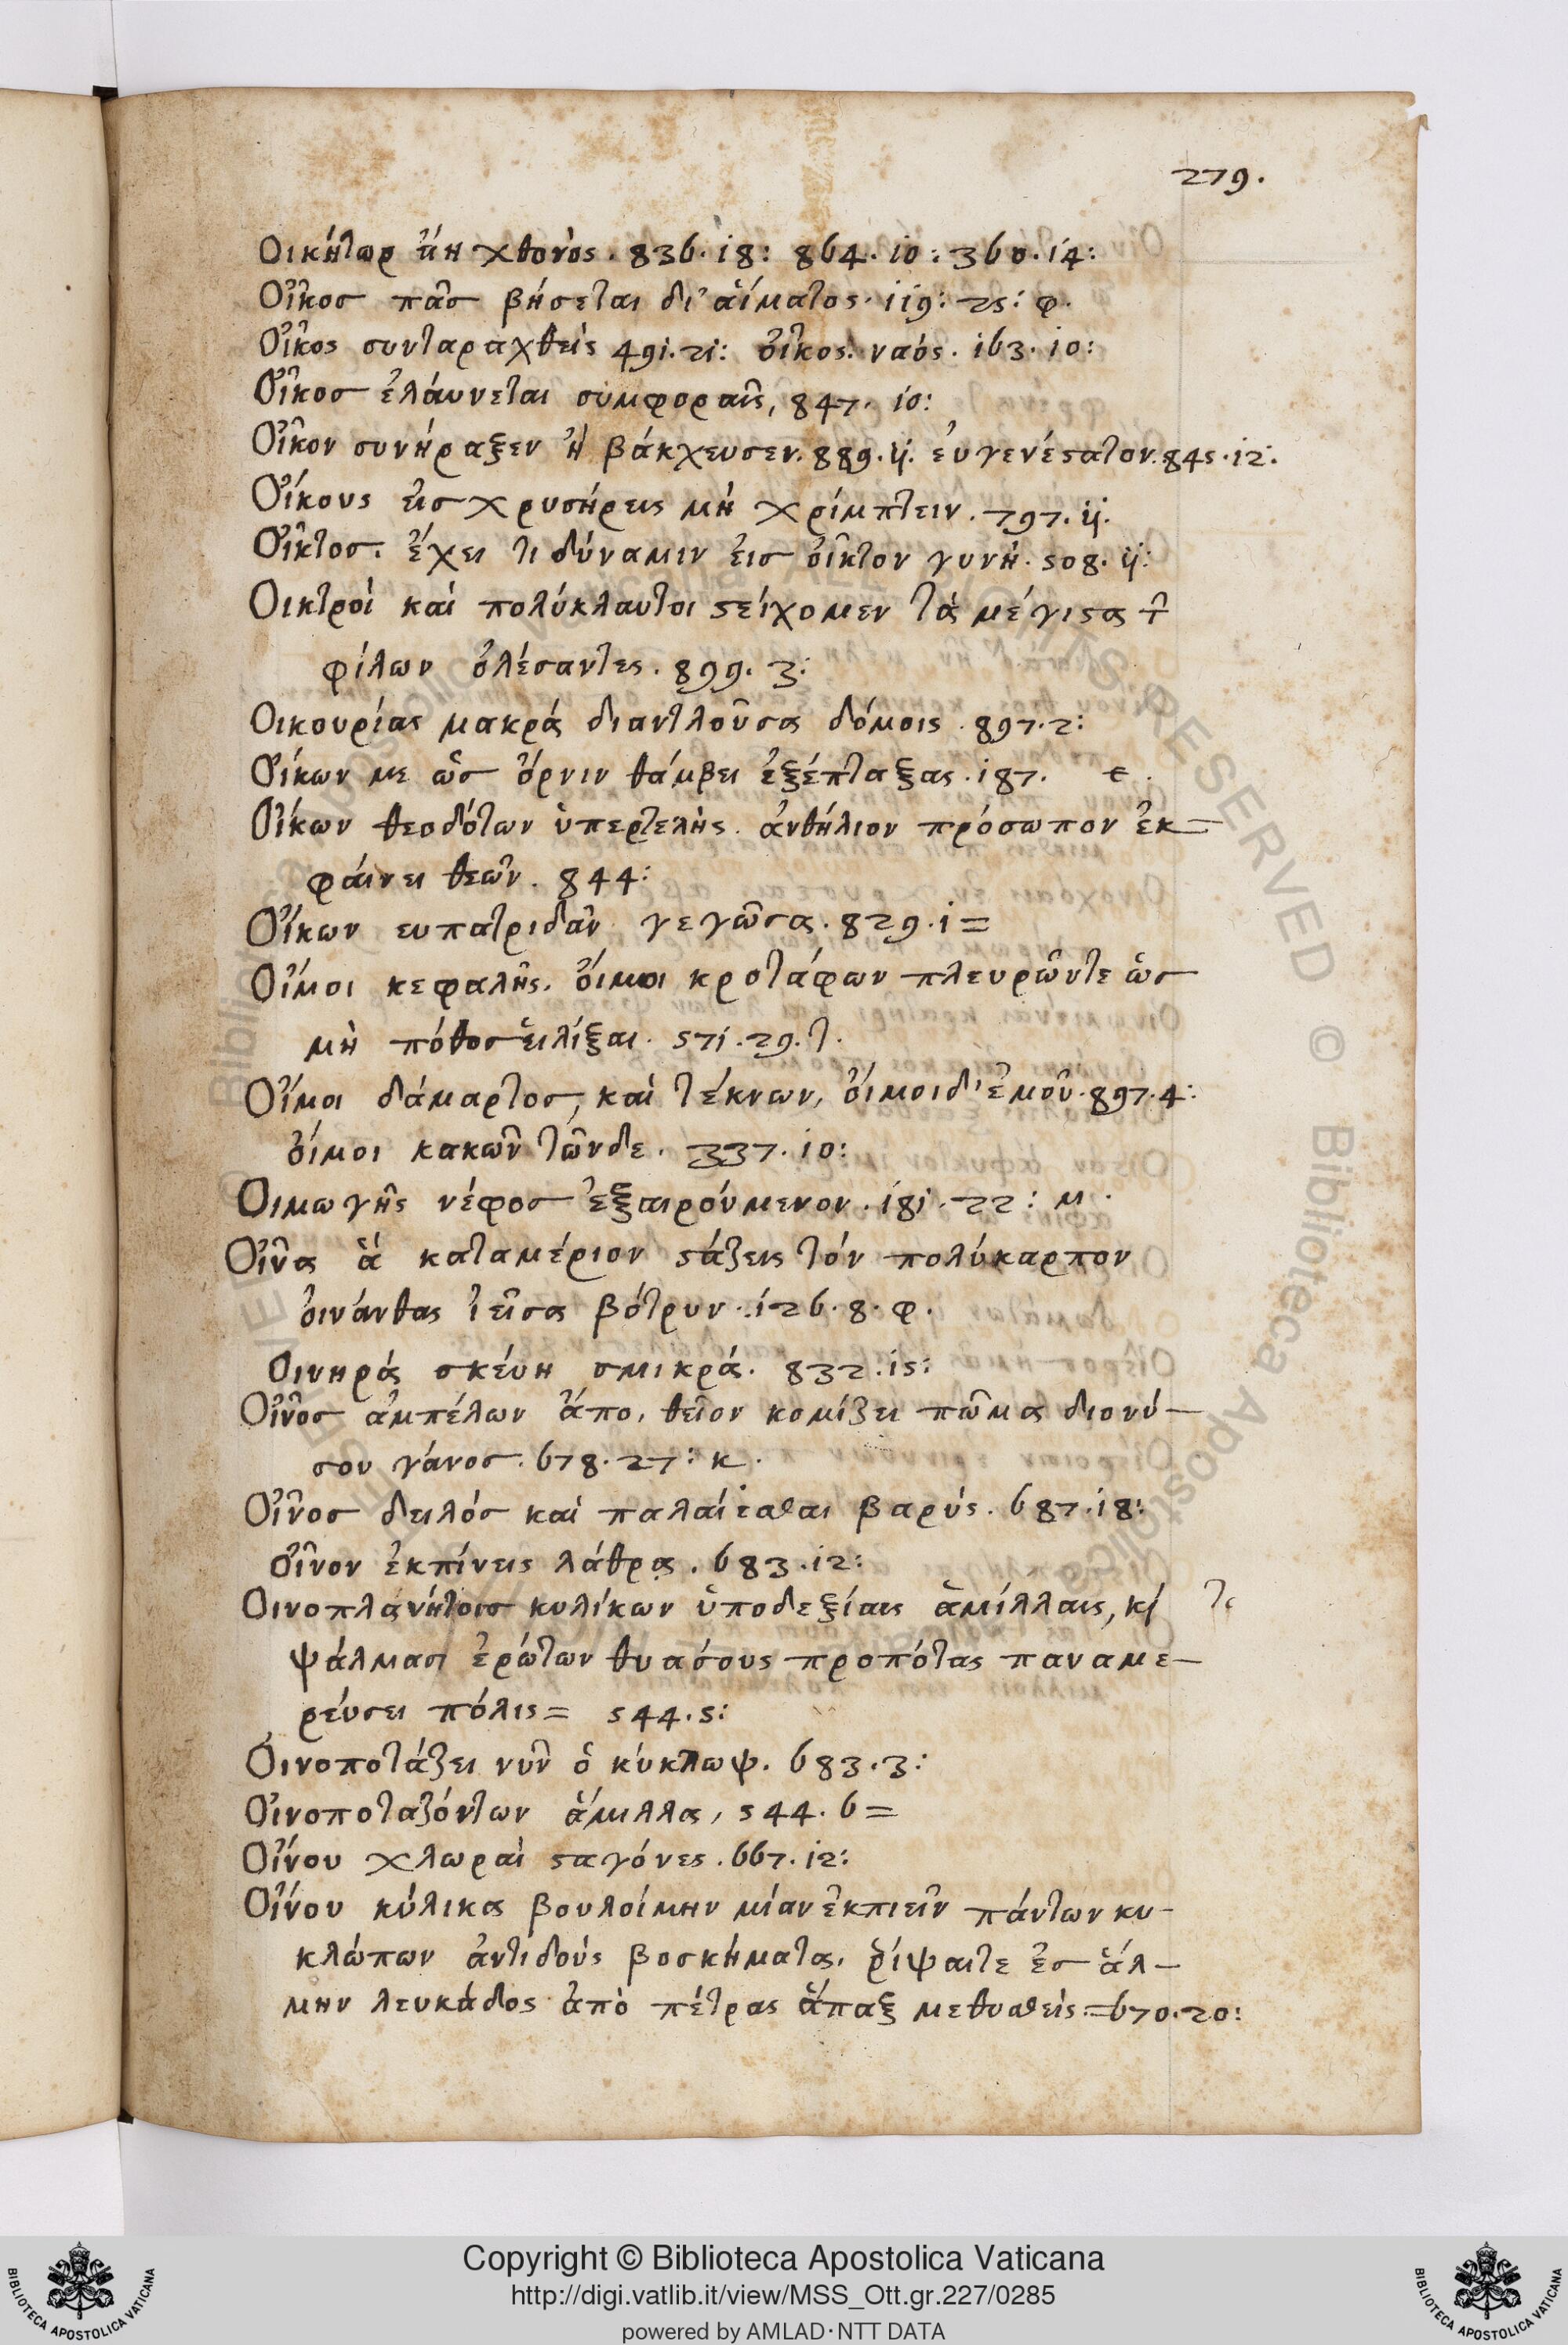 279.
Οικήτωρ χθονὸς. 836. 18: 864. 10: 360. 14:
Οἶκος πᾶς βήσεται δι' αἵματος. 119: 25: φ.
Οἶκος συνταραχθεὶς 491. 21: οἶκος. ναός. 163. 10:
Οἶκος ἐλάυνεται συμφοραῖς, 847. 10:
Οἶκον συνήραξεν ἢ βάκχευσεν. 889. 11. εὐγενέϛατον. 845. 12.
Οἴκους εἰς χρυσήρεις μὴ χρίμπτειν. 797. 11.
Οἶκτος. ἔχει τι δύναμιν εἰς οἶκτον γυνή. 508. 11:
Οικτροὶ καὶ πολύκλαυτοι ϛείχομεν τὰ μέγιϛα τ̑
φίλων ὀλέσαντες. 899. 3:
Οικουρίας μακρά διαντλοῦσα δόμοις. 897. 2:
Οἴκων με ὡς ὄρνιν θάμβει ἐξέπταξας. 187. e.
Οἴκων θεοδότων ὑπερτελὴς. ἀνθήλιον πρόσωπον ἐκ=
φάινει θεῶν. 844:
Οἴκων ευπατριδᾶν γεγῶσα. 829. 1=
Οἴμοι κεφαλῆς. οἴμοι κροτάφων πλευρῶντε ὡς
μὴ πόθος εἱλίξαι. 571. 29. τ.
Οἴμοι δάμαρτος, καὶ τέκνων, οἴμοιδ' ἐμοῦ. 897. 4:
οἴμοι κακῶν τῶνδε. 337. 10:
Οιμωγῆς νέφος ἐξαιρόυμενον. 181. 22: μ.
Οἶνα ἁ καταμέριον ϛάζεις τόν πολύκαρπον
οἰνάνθας ἱεῖσα βότρυν. 126. 8. φ.
Οινηρά σκέυη σμικρά. 832. 15:
Οἶνος ἀμπέλων ἄπο, θεῖον κομίζει πῶμα διονύ-
σου γάνος. 678. 27: κ.
Οἶνος δειλός καὶ παλαίεσθαι βαρύς. 687. 18:
οἶνον ἐκπίνεις λάθρα. 683. 12:
Οινοπλανήτοις κυλίκων ὑποδεξίαις ἁμίλλαις, κὶ
ψάλμασι ἐρώτων θυασους προπότας παναμε-
ρέυσει πόλις= 544. 5:
Οινοποτάζει νυν ὁ κύκλωψ. 683. 3:
Οἰνοποταζόντων ἅμιλλα, 544. 6=
Οἴνου χλωραὶ ϛαγόνες. 667. 12:
Οἴνου κύλικα βουλοίμην μίαν ἐκπιεῖν πάντων κυ-
κλώπων ἀντιδοὺς βοσκήματα. ῥίψαιτε ἐς ἅλ-
μην λευκάδος ἀπὸ πέτρας ἅπαξ μεθυσθεὶς.=670. 20:
Copyright © Biblioteca Apostolica Vaticana
http://digi.vatlib.it/view/MSS_Ott.gr.227/0285
powered by AMLAD·NTT DATA
BIBLIOTECA APOSTOLICA VATICANA
BIBLIOTECA APOSTOLICA VATICANA